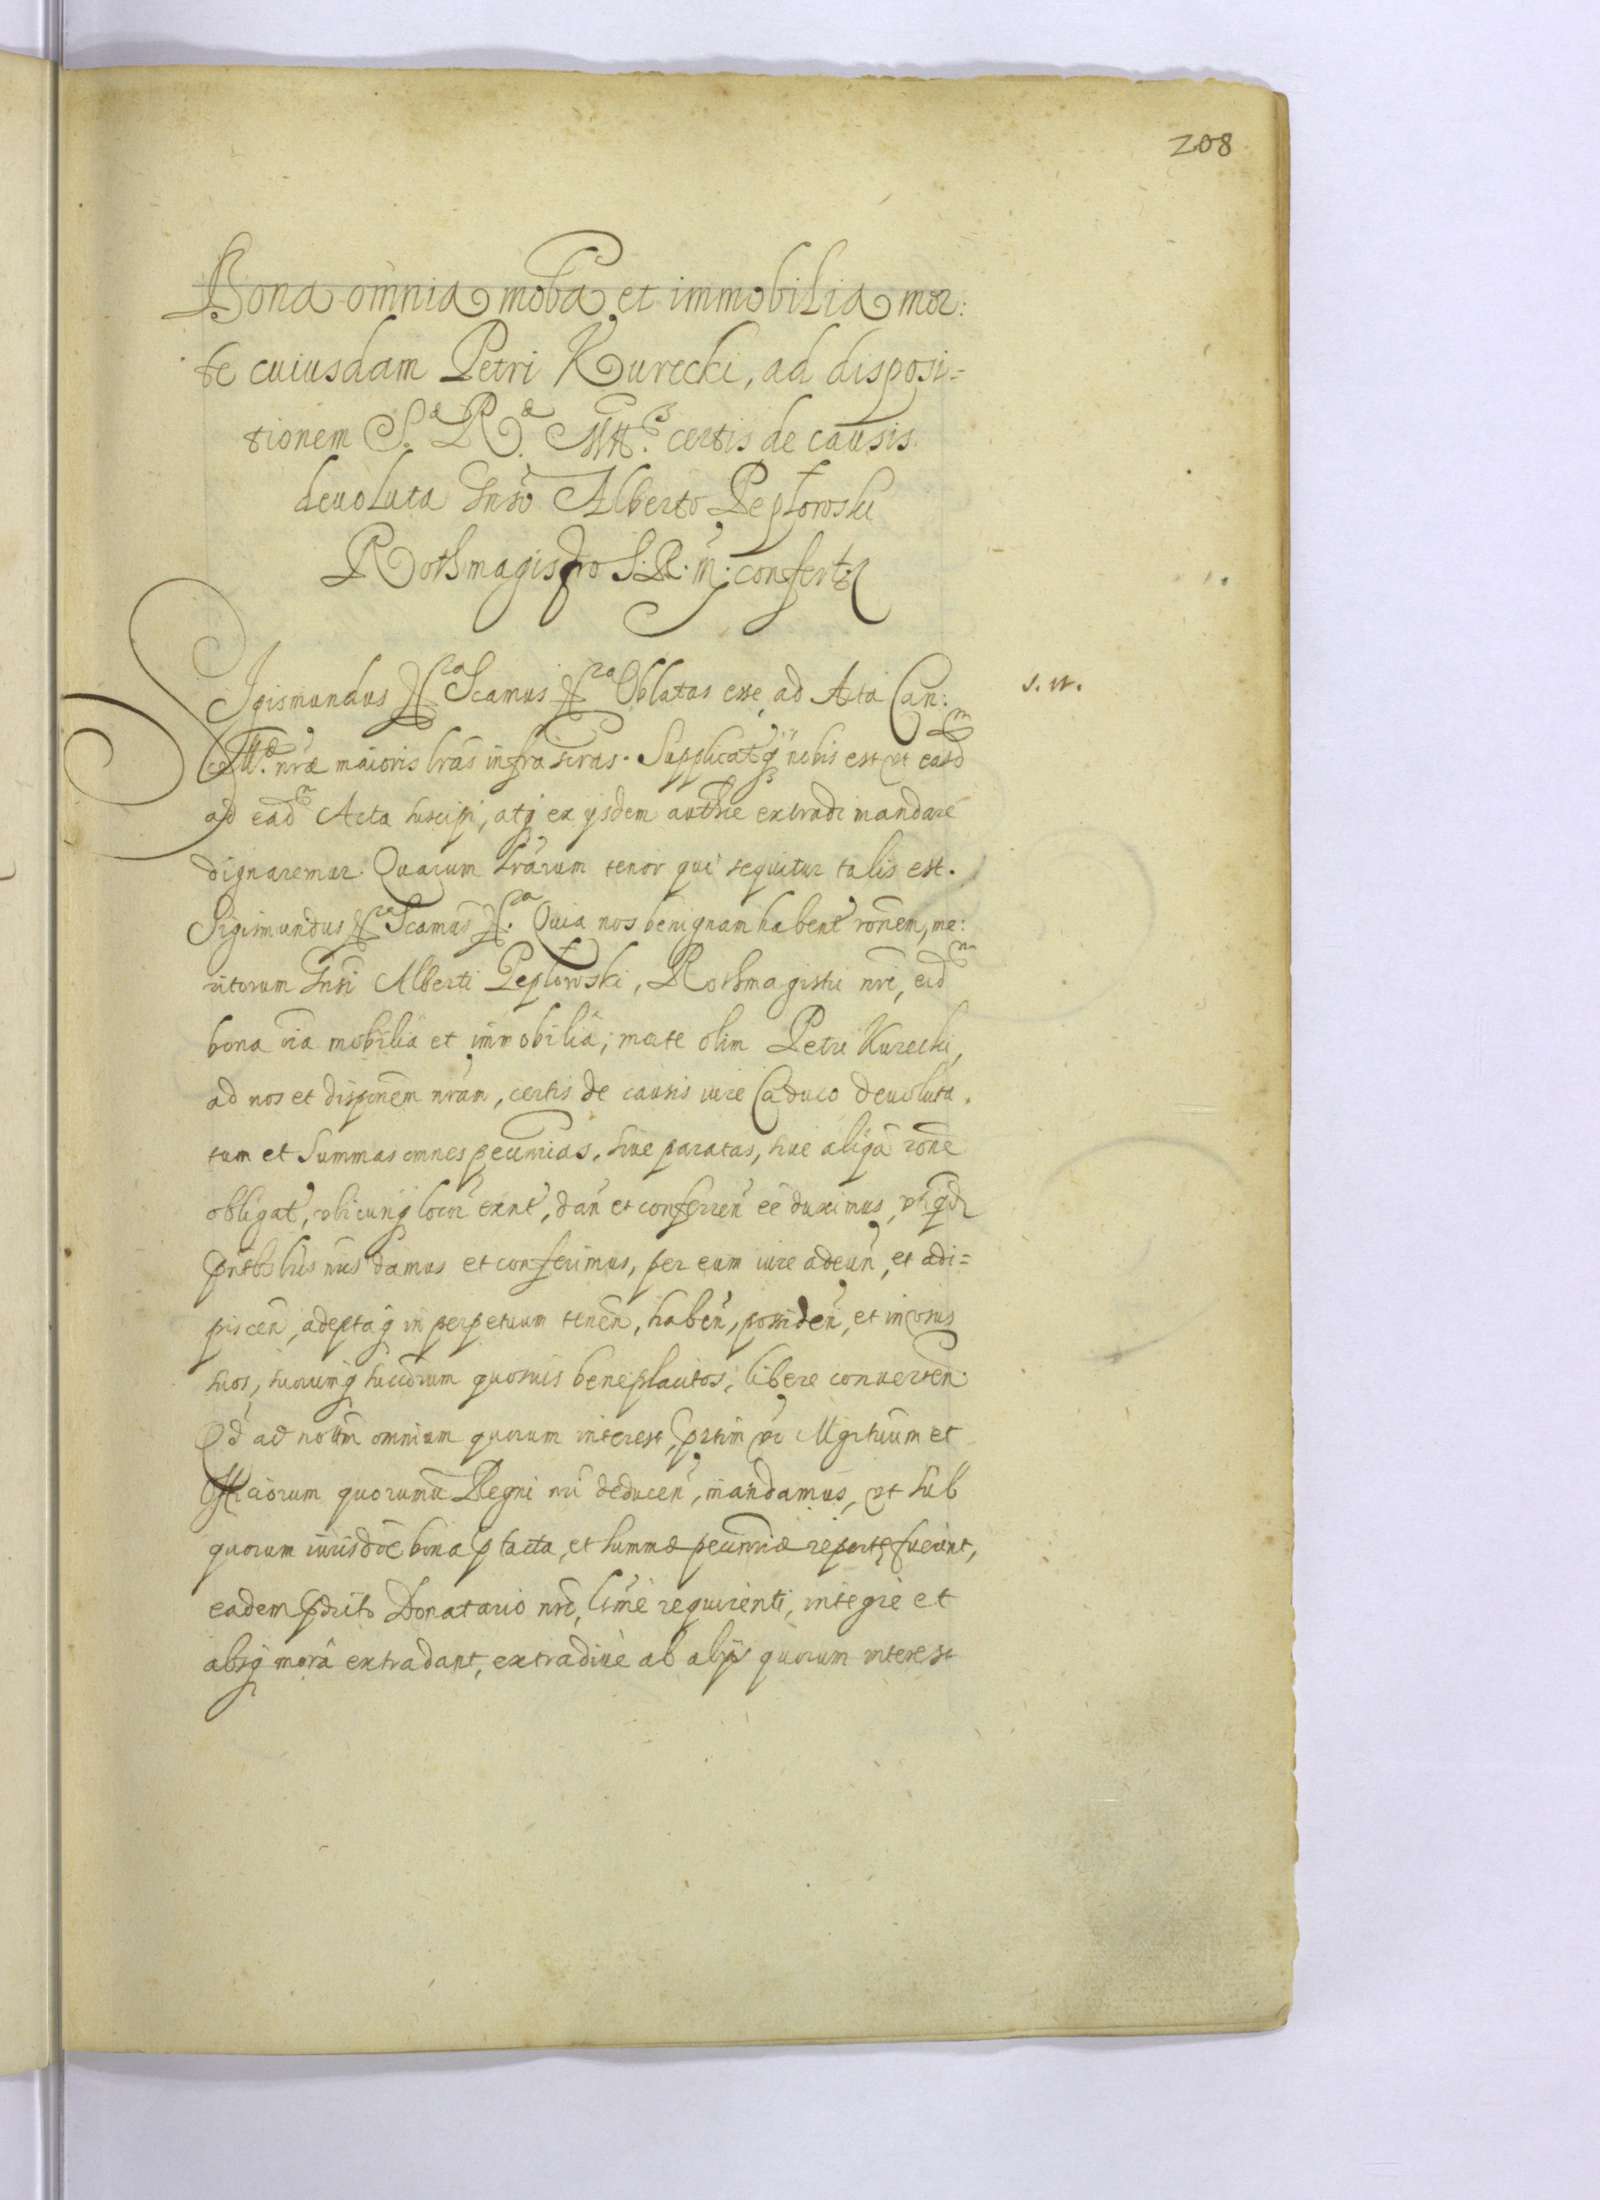 208
Bona omnia moba et immobilia mor:
te cuiusdam Petri Kurecki, ad disposi=
tionem S. R. Mtt. certis de causis
devoluta Gnso Alberto Peplowski
Rothmagistro S: R: m: confert
Sigismundus &ra Scamus &ra Oblatas esse, ad Acta Can:
s. n.
cell. nrae maioris lras infra scras. Supplicatq nobis est vt easd
ad ead Acta suscipi, atq ex ysdem authce extradi mandare
dignaremur. Quarum lrarum tenor qui sequitur talis est.
Sigismundus &ra Scamus &ra. Quia nos benignam habent ronem, me:
ritorum Gnsi Alberti Peplowski, Rothmagistri nri, eid
bona oia mobilia et immobilia; morte olim Petri Kurecki,
ad nos et disponem nram, certis de causis iure Caduco devoluta.
tum et Summas omnes pecunias, siue paratas, siue aliqa rone
obligat, vbicunq locor exnt, dan et conferren ee duximus, vtiq
pntbs lris nris damus et conferimus, per eum iure adeun, et adi=
piscen, adeptaq in perpetuum tenen, haben, possiden, et in vsus
suos, suorumq succorum quosuis beneplacitos, libere conuerten.
Qd ad notitm omnium quorum interest, prtim vero Mgrtuum et
Officiorum quorumu Regni nri deducen, mandamus, vt sub
quorum iurisdoe bona ptacta, et summae pecuniae reperte fuerint,
eadem pdicto Donatario nro, ltme requirenti, integre et
absq mora extradant, extradiue ab alys quorum interest